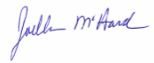 Joellen McHard